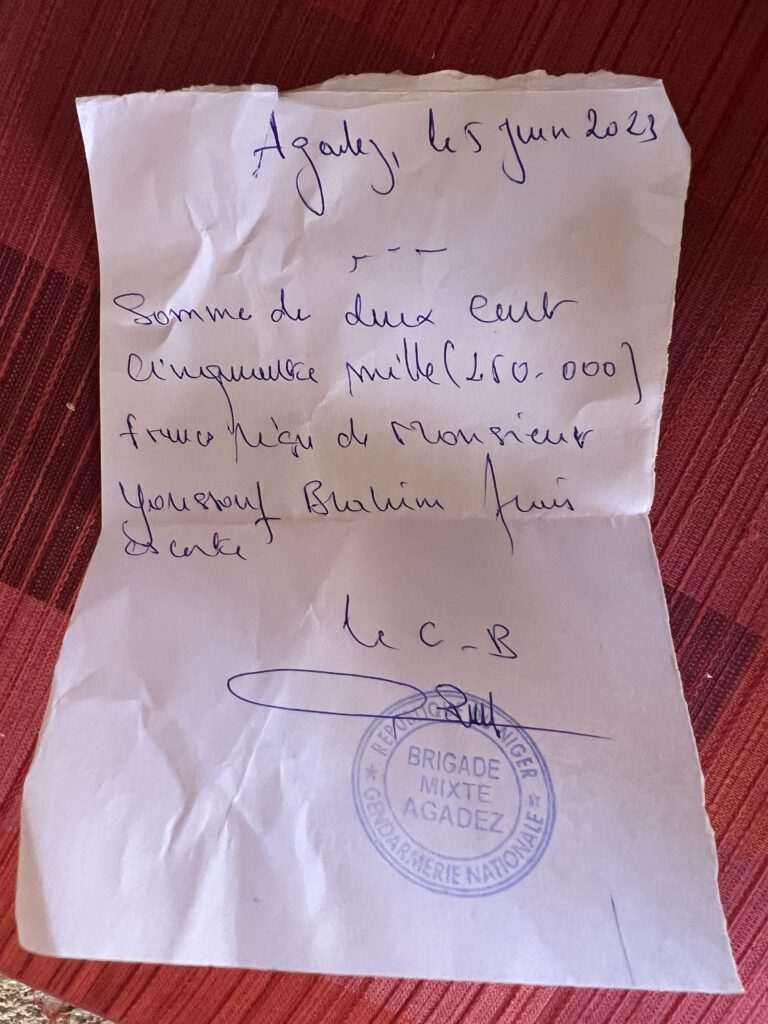 Agadez, le 5 Juin 2023
Somme de deux cent
cinquante mille (250.000)
franc reçu de Monsieur
Youssouf Brahim frais
escorte
Le C-B
REPUBLIQUE DU NIGER
BRIGADE
MIXTE
AGADEZ
GENDARMERIE NATIONALE